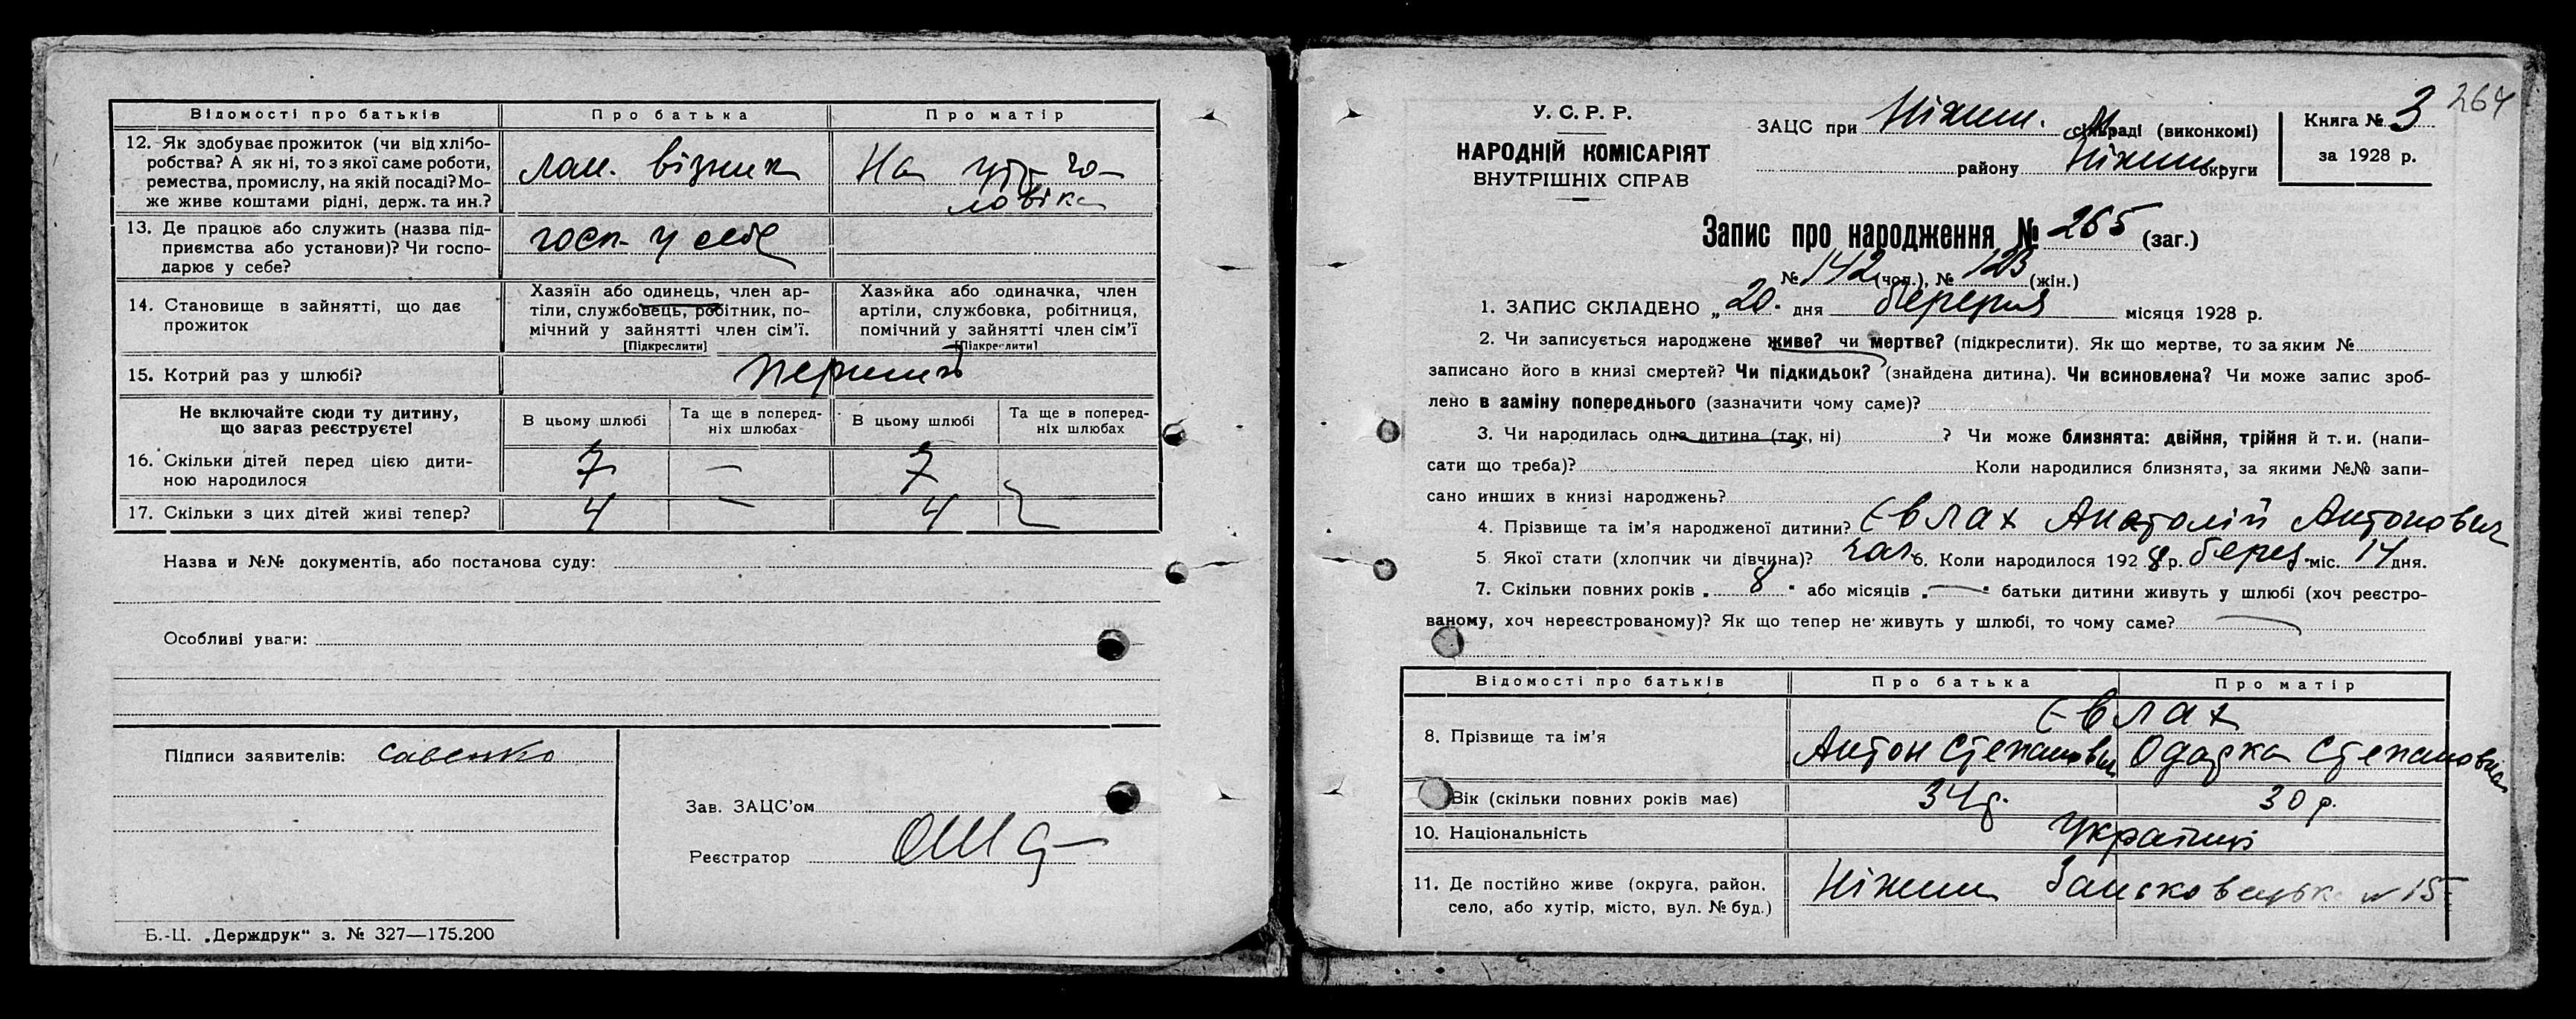 Відомості про батьків Про батька Про матір
12. Як здобуває прожиток (чи від хлібо-
робства? А як ні, то з якої саме роботи,
ремества, промислу, на якій посаді? Мо-
же живе коштами рідні, держ. та ин.?
лом. візник
На утр. чо-
ловіка
13. Де працює або служить (назва під-
приємства або установи)? Чи госпо-
дарює у себе?
госп. у себе
14. Становище в зайнятті, що дає
прожиток
Хазяїн або одинець, член ар-
тіли, службовець, робітник, по-
мічний у зайнятті член сім'ї.
[Підкреслити]
Хазяйка або одиначка, член
артіли, службовка, робітниця,
помічний у зайнятті член сім'ї
[Підкреслити]
15. Котрий раз у шлюбі? перший
Не включайте сюди ту дитину,
що зараз реєструєте!
В цьому шлюбі
Та ще в поперед-
ніх шлюбах
В цьому шлюбі
Та ще в поперед-
ніх шлюбах
16. Скільки дітей перед цією дити-
ною народилося
7 — 7
17. Скільки з цих дітей живі тепер? 4 — 4
Назва и №№ документів, або постанова суду:
Особливі уваги:
Підписи заявителів: Савенко
Зав. ЗАЦС'ом
Реєстратор
Б.-Ц. „Держдрук" з. № 327—175.200
264
У. С. Р. Р.
НАРОДНІЙ КОМІСАРІЯТ
ВНУТРІШНІХ СПРАВ
ЗАЦС при Ніжин. М сільраді (виконкомі)
району Ніжин округи
Книга № 3
за 1928 р.
Запис про народження № 265 (заг.)
№ 142 (чол.), № 123 (жін.)
1. ЗАПИС СКЛАДЕНО „20" дня березня місяця 1928 р.
2. Чи записується народжене живе? чи мертве? (підкреслити). Як що мертве, то за яким №
записано його в книзі смертей? Чи підкидьок? (знайдена дитина). Чи всиновлена? Чи може запис зроб-
лено в заміну попереднього (зазначити чому саме)?
3. Чи народилась одна дитина (так, ні) ? Чи може близнята: двійня, трійня й т. и. (напи-
сати що треба)? Коли народилися близнята, за якими №№ запи-
сано инших в книзі народжень?
4. Прізвище та ім'я народженої дитини? Євлах Анатолій Антонович
5. Якої стати (хлопчик чи дівчина)? хл. 6. Коли народилося 1928 р. берез. міс. 14 дня.
7. Скільки повних років „8" або місяців „—" батьки дитини живуть у шлюбі (хоч реєстро-
ваному, хоч нереєстрованому)? Як що тепер не живуть у шлюбі, то чому саме? —
Відомості про батьків Про батька Про матір
8. Прізвище та ім'я
Євлах
Антон Степанович Одарка Степановна
Вік (скільки повних років має) 34 р. 30 р.
10. Національність Українці
11. Де постійно живе (округа, район,
село, або хутір, місто, вул. № буд.)
Ніжин Заньковецьк № 15